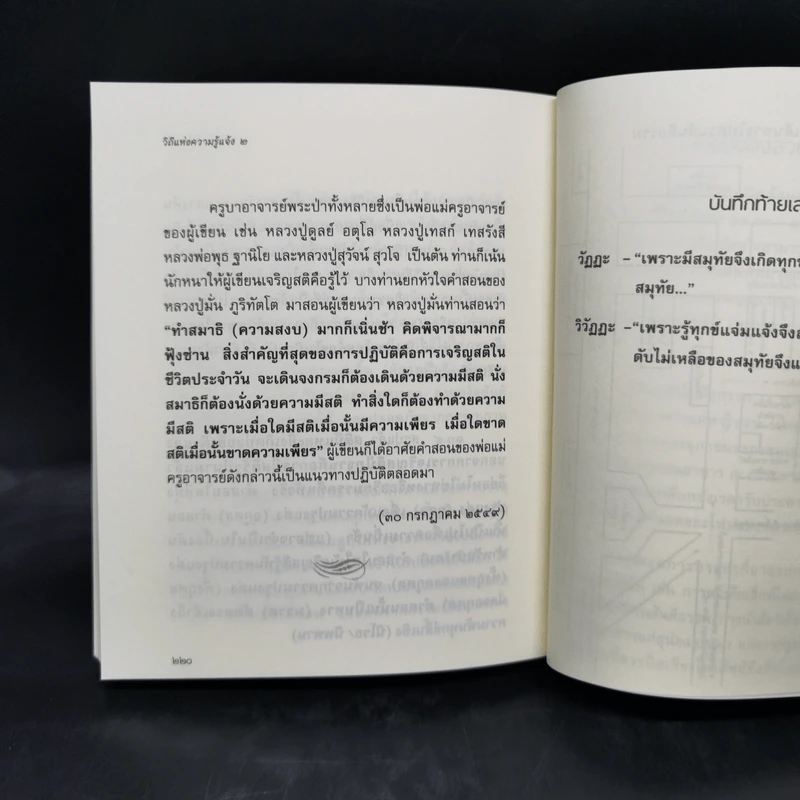 วิถีแห่งความรู้แจ้ง ๒
ครูบาอาจารย์พระป่าทั้งหลายซึ่งเป็นพ่อแม่ครูอาจารย์
ของผู้เขียน เช่น หลวงปู่ดูลย์ อตุโล หลวงปู่เทสก์ เทสรังสี
หลวงพ่อพุธ ฐานิโย และหลวงปู่สุวัจน์ สุวโจ เป็นต้น ท่านก็เน้น
นักหนาให้ผู้เขียนเจริญสติคือรู้ไว้ บางท่านยกหัวใจคำสอนของ
หลวงปู่มั่น ภูริทัตโต มาสอนผู้เขียนว่า หลวงปู่มั่นท่านสอนว่า
“ทำสมาธิ (ความสงบ) มากก็เนิ่นช้า คิดพิจารณามากก็
ฟุ้งซ่าน สิ่งสำคัญที่สุดของการปฏิบัติคือการเจริญสติใน
ชีวิตประจำวัน จะเดินจงกรมก็ต้องเดินด้วยความมีสติ นั่ง
สมาธิก็ต้องนั่งด้วยความมีสติ ทำสิ่งใดก็ต้องทำด้วยความ
มีสติ เพราะเมื่อใดมีสติเมื่อนั้นมีความเพียร เมื่อใดขาด
สติเมื่อนั้นขาดความเพียร” ผู้เขียนก็ได้อาศัยคำสอนของพ่อแม่
ครูอาจารย์ดังกล่าวนี้เป็นแนวทางปฏิบัติตลอดมา
(๓๐ กรกฎาคม ๒๕๔๙)
๒๒๐
บันทึกท้ายเล
วัฏฏะ – “เพราะมีสมุทัยจึงเกิดทุกข
สมุทัย...”
วิวัฏฏะ – “เพราะรู้ทุกข์แจ่มแจ้งจึงล
ดับไม่เหลือของสมุทัยจึงแ